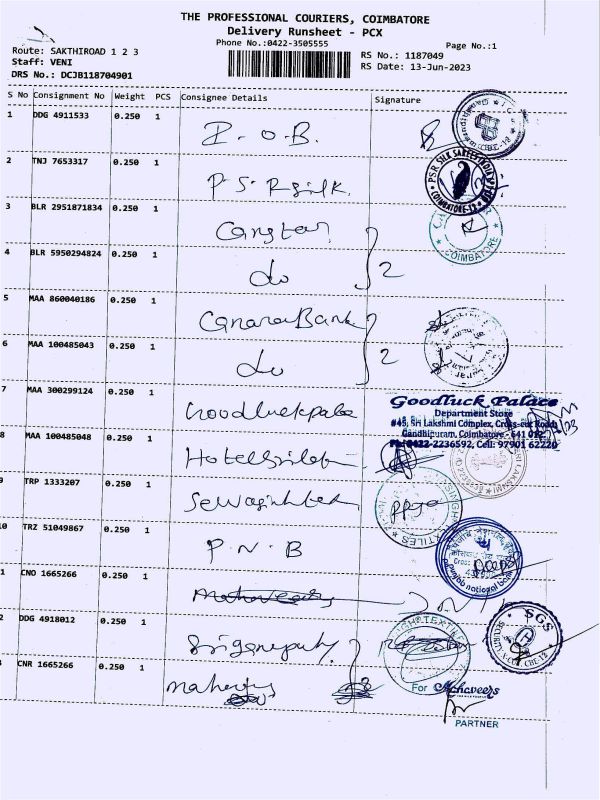 THE PROFESSIONAL COURIERS, COIMBATORE
Delivery Runsheet - PCX
Phone No.:0422-3505555
Page No.:1
Route: SAKTHIROAD 1 2 3
Staff: VENI
DRS No.: DCJB118704901
RS No.: 1187049
RS Date: 13-Jun-2023
S No Consignment No Weight PCS Consignee Details Signature
1 DDG 4911533 0.250 1
I. O. B.
2 TNJ 7653317 0.250 1
P. S. R silk
PSR SILK SAREES INDIA
COIMBATORE-12
3 BLR 2951871834 0.250 1
COIMBATORE
4 BLR 5950294824 0.250 1
do 2
5 MAA 860040186 0.250 1
Canara Bank
6 MAA 100485043 0.250 1
do 2
7 MAA 300299124 0.250 1
Goodluck Palace
Department Store
#45, Sri Lakshmi Complex, Cross-cut Road,
Gandhipuram, Coimbatore - 641 012.
Ph: 0422-2236592, Cell: 97901 62220
8 MAA 100485048 0.250 1
Hotel
9 TRP 1333207 0.250 1
TEXTILES
10 TRZ 51049867 0.250 1
P. N. B
punjab national bank
1 CNO 1665266 0.250 1
2 DDG 4918012 0.250 1
SGS
CBE-12
CNR 1665266 0.250 1
For Mahaveers
PARTNER